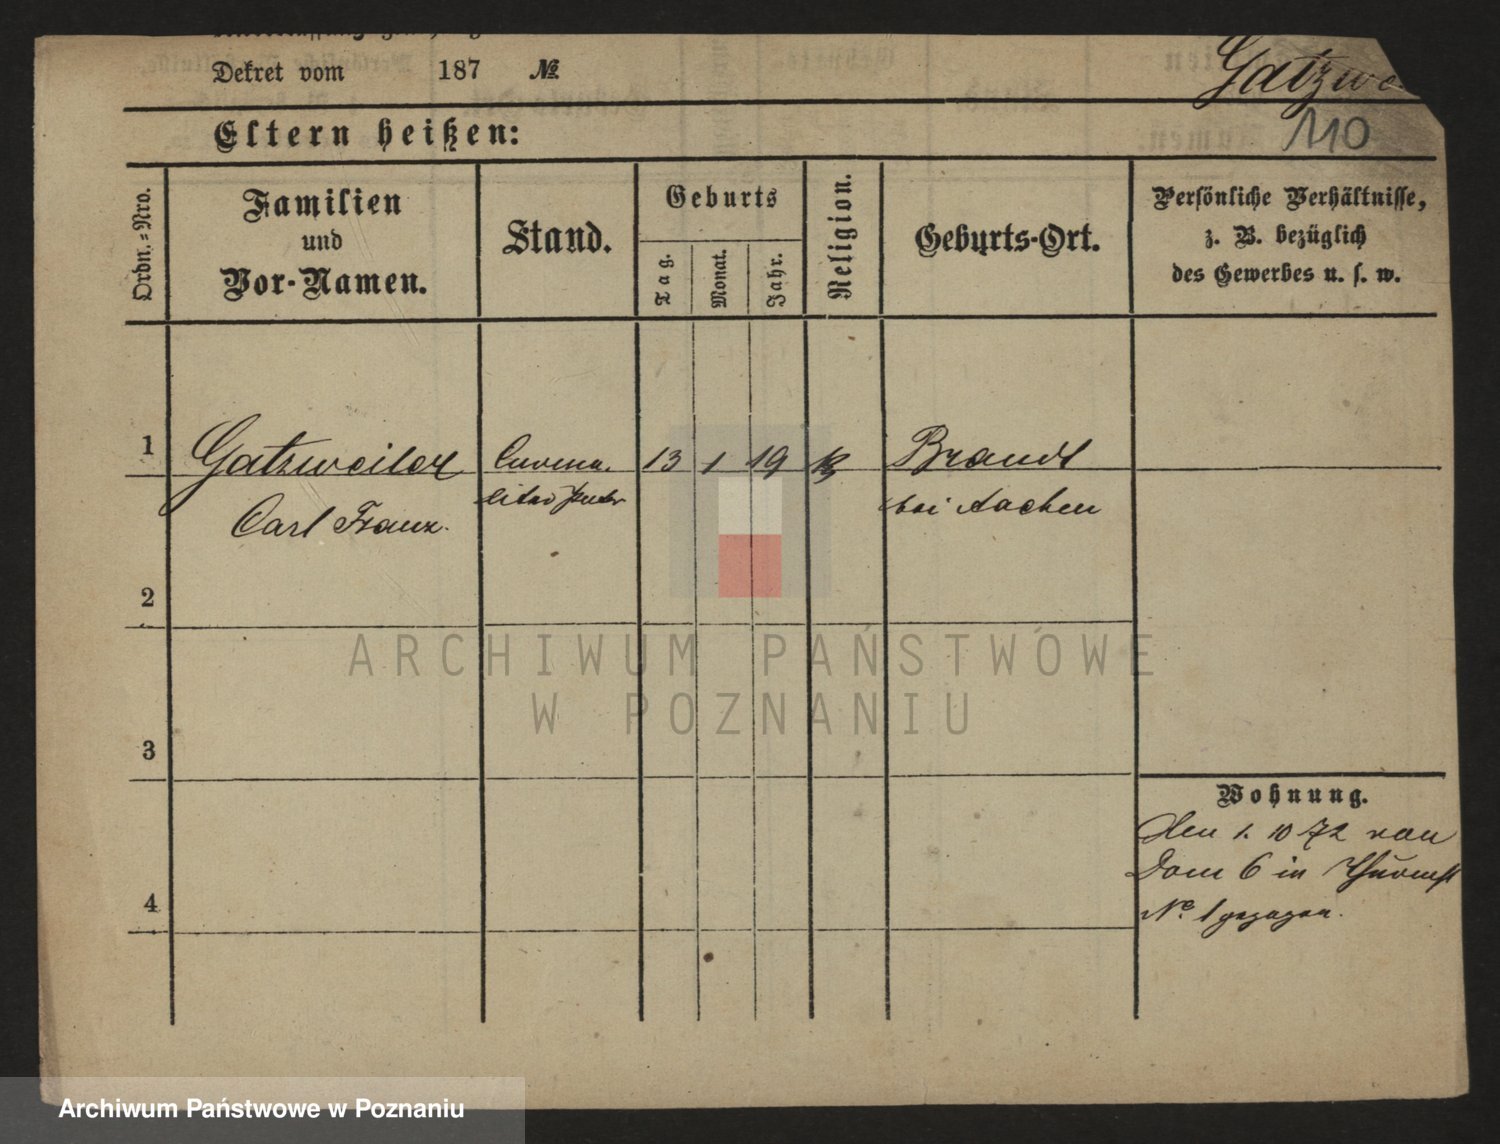 Dekret vom 187 №
Gatzwe
Eltern heißen:
110
Ordn.-Nro.
Familien
und
Vor-Namen.
Stand.
Geburts
Tag.
Monat.
Jahr.
Religion.
Geburts-Ort.
Persönliche Verhältnisse,
z. B. bezüglich
des Gewerbes u. s. w.
1
Gatzweiler
13 1 19 K
Brandt
Carl Franz.
bei Aachen
2
ARCHIWUM PAŃSTWOWE
W POZNANIU
3
Wohnung.
Den 1. 10 72 von
Dom 6 in
4
No. 1 gezogen.
Archiwum Państwowe w Poznaniu